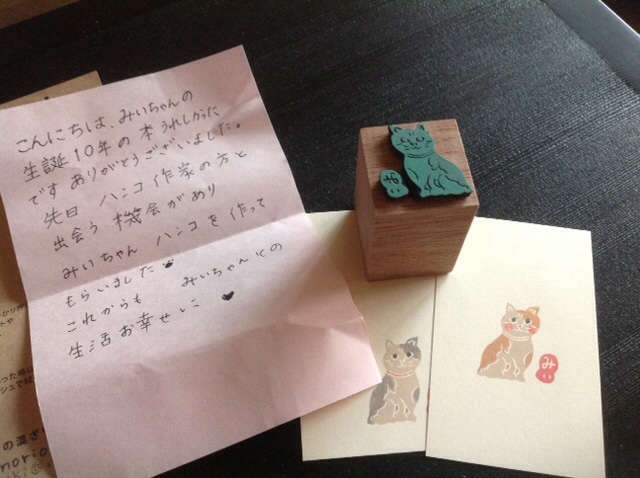 こんにちは、みいちゃんの
生誕10年の本うれしかった
です ありがとうございました。
先日 ハンコ作家の方と
出会う 機会があり
みいちゃん ハンコを作って
もらいました
これからも みいちゃんとの
生活お幸せに
み
み
の混ざ
norio